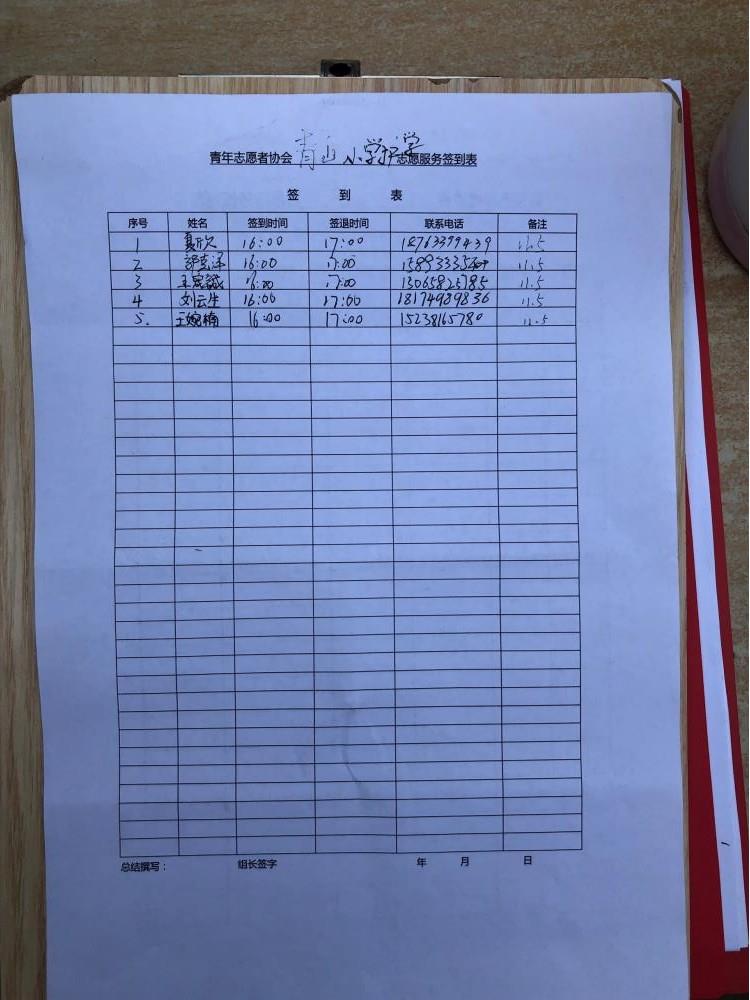 青年志愿者协会 青山小学护学 志愿服务签到表
签 到 表
序号 姓名 签到时间 签退时间 联系电话 备注
1 夏欣 16:00 17:00 18763399439 11.5
2 16:00 17:00 11.5
3 16:00 17:00 13065825785 11.5
4 刘云生 16:00 17:00 18174989836 11.5
5. 王婉楠 16:00 17:00 15238165780 11.5
总结撰写： 组长签字 年 月 日